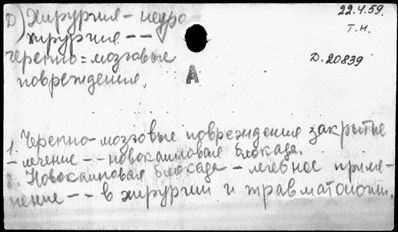 Д) Хирургия - нейро
хирургия --
черепно=мозговые
повреждения.
22.4.59.
Т.Н.
Д. 20839
А
1. Черепно-мозговые повреждения закрытые
- лечение -- новокаиновая блокада.
2. Новокаиновая блокада - лечебное приме-
нение -- в хирургии и травматологии.